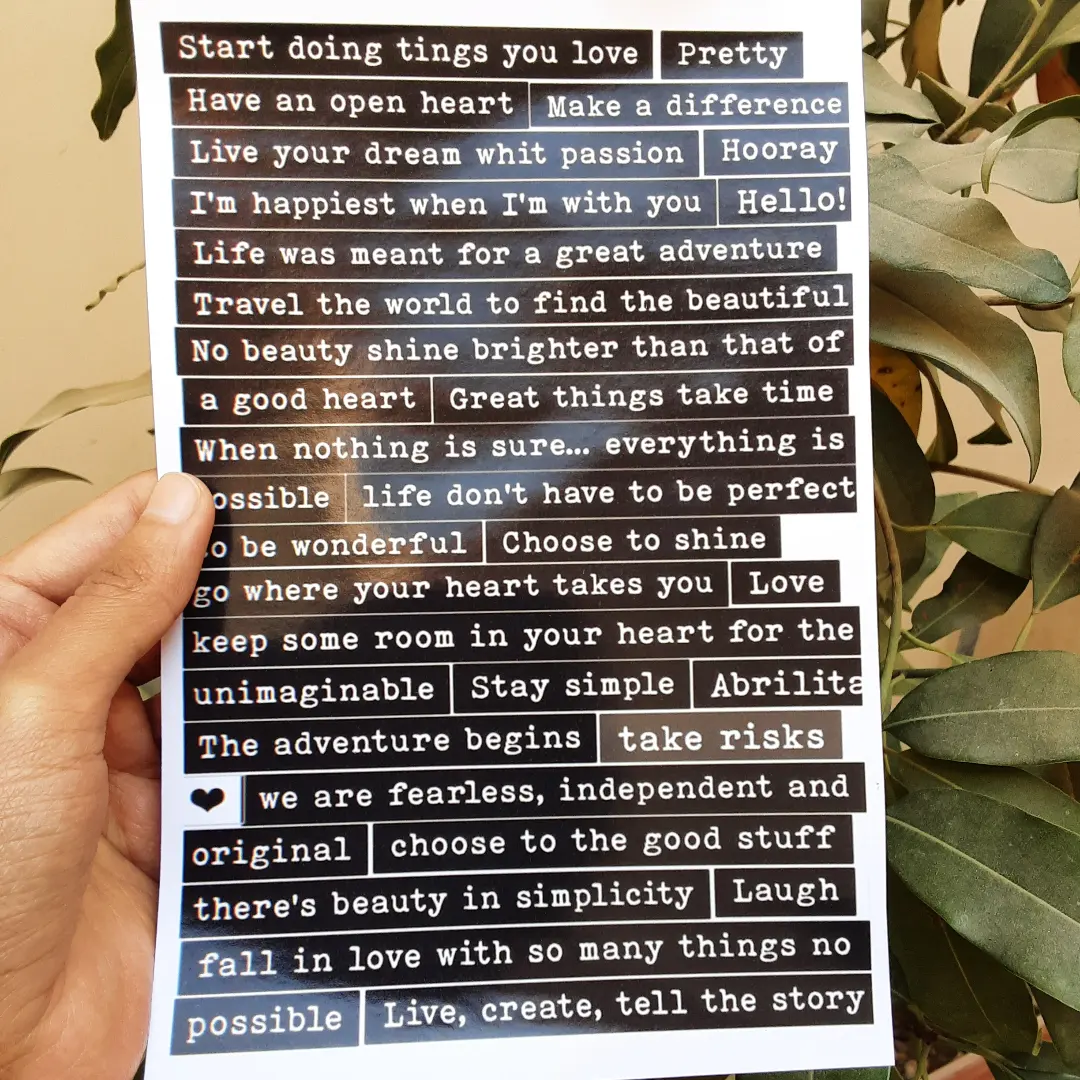 Start doing tings you love Pretty
Have an open heart Make a difference
Live your dream whit passion Hooray
I'm happiest when I'm with you Hello!
Life was meant for a great adventure
Travel the world to find the beautiful
No beauty shine brighter than that of
a good heart Great things take time
When nothing is sure... everything is
ossible life don't have to be perfect
o be wonderful Choose to shine
go where your heart takes you Love
keep some room in your heart for the
unimaginable Stay simple Abrilita
The adventure begins take risks
❤ we are fearless, independent and
original choose to the good stuff
there's beauty in simplicity Laugh
fall in love with so many things no
possible Live, create, tell the story